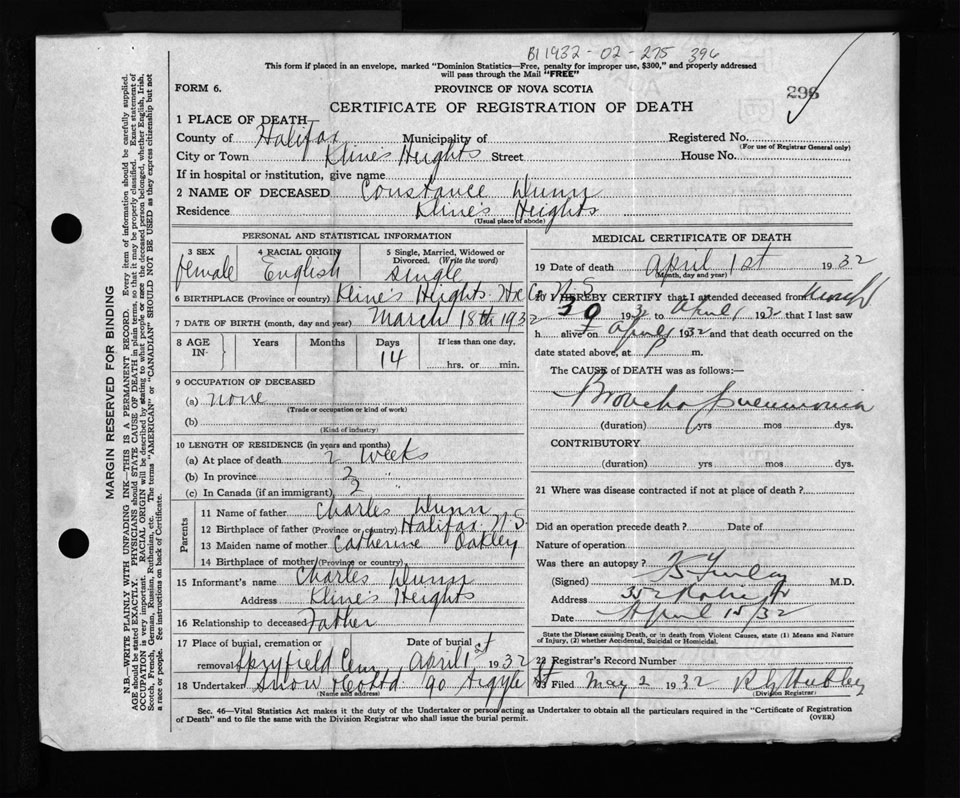 B1 1932-02-275 396
This form if placed in an envelope, marked "Dominion Statistics—Free, penalty for improper use, $300," and properly addressed
will pass through the Mail "FREE"
FORM 6.
PROVINCE OF NOVA SCOTIA
296
CERTIFICATE OF REGISTRATION OF DEATH
1 PLACE OF DEATH
County of Halifax Municipality of Registered No.
(For use of Registrar General only)
City or Town Kline's Heights Street House No.
If in hospital or institution, give name
2 NAME OF DECEASED Constance Dunn
Residence Kline's Heights
(Usual place of abode)
PERSONAL AND STATISTICAL INFORMATION
3 SEX 4 RACIAL ORIGIN 5 Single, Married, Widowed or Divorced. (Write the word)
female English single
6 BIRTHPLACE (Province or country) Kline's Heights Hx Co N.S.
7 DATE OF BIRTH (month, day and year) March 18th 1932
8 AGE IN- Years Months Days If less than one day,
14 hrs. or min.
9 OCCUPATION OF DECEASED
(a) none
(Trade or occupation or kind of work)
(b)
(Kind of industry)
10 LENGTH OF RESIDENCE (in years and months)
(a) At place of death 2 weeks
(b) In province 2 "
(c) In Canada (if an immigrant) 2
Parents
11 Name of father Charles Dunn
12 Birthplace of father (Province or country) Halifax N.S.
13 Maiden name of mother Catherine Oakley
14 Birthplace of mother (Province or country)
15 Informant's name Charles Dunn
Address Kline's Heights
16 Relationship to deceased Father
17 Place of burial, cremation or Date of burial
removal Spryfield Cem April 1st 1932
18 Undertaker Snow & Co Ltd 90 Argyle St
(Name and address)
MEDICAL CERTIFICATE OF DEATH
19 Date of death April 1st 1932
(Month, day and year)
20 I HEREBY CERTIFY that I attended deceased from March
30 1932 to April 1 1932 that I last saw
h alive on April 1 1932 and that death occurred on the
date stated above, at m.
The CAUSE of DEATH was as follows:—
Broncho pneumonia
(duration) yrs mos dys.
CONTRIBUTORY
(duration) yrs mos dys.
21 Where was disease contracted if not at place of death?
Did an operation precede death? Date of
Nature of operation
Was there an autopsy?
(Signed) M.D.
Address 352
Date April 1st/32
State the Disease causing Death, or in death from Violent Causes, state (1) Means and Nature
of Injury, (2) whether Accidental, Suicidal or Homicidal.
22 Registrar's Record Number
23 Filed May 2 1932 R G Hubley
(Division Registrar)
Sec. 46—Vital Statistics Act makes it the duty of the Undertaker or person acting as Undertaker to obtain all the particulars required in the "Certificate of Registration
of Death" and to file the same with the Division Registrar who shall issue the burial permit.
(OVER)
MARGIN RESERVED FOR BINDING
N.B.—WRITE PLAINLY WITH UNFADING INK—THIS IS A PERMANENT RECORD. Every item of information should be carefully supplied.
AGE should be stated EXACTLY. PHYSICIANS should STATE CAUSE OF DEATH in plain terms, so that it may be properly classified. Exact statement of
OCCUPATION is very important. RACIAL ORIGIN will be described by stating to what people or race the deceased person belonged, whether English, Irish,
Scotch, French, German, Russian, Ruthenian, etc. The terms "AMERICAN" or "CANADIAN" SHOULD NOT BE USED as they express citizenship but not
a race or people. See instructions on back of Certificate.